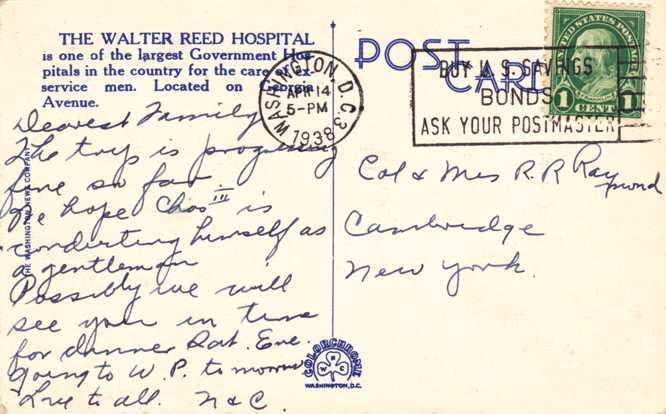 THE WALTER REED HOSPITAL
is one of the largest Government Hos-
pitals in the country for the care of ex-
service men. Located on Georgia
Avenue.
POST CARD
WASHINGTON, D.C. 3
APR 14
5-PM
1938
BUY U.S. SAVINGS
BONDS
ASK YOUR POSTMASTER
UNITED STATES POSTAGE
1 CENT 1
Dearest Family
The trip is progressing
fine so far
We hope Chas III is
conducting himself as
a gentleman
Possibly we will
see you in time
for dinner Sat. Eve.
Going to W. P. tomorrow
Love to all. N & C
Col & Mrs R. R Raymond
Cambridge
New York.
THE WASHINGTON NEWS COMPANY
COLORCHROME
WASHINGTON, D.C.